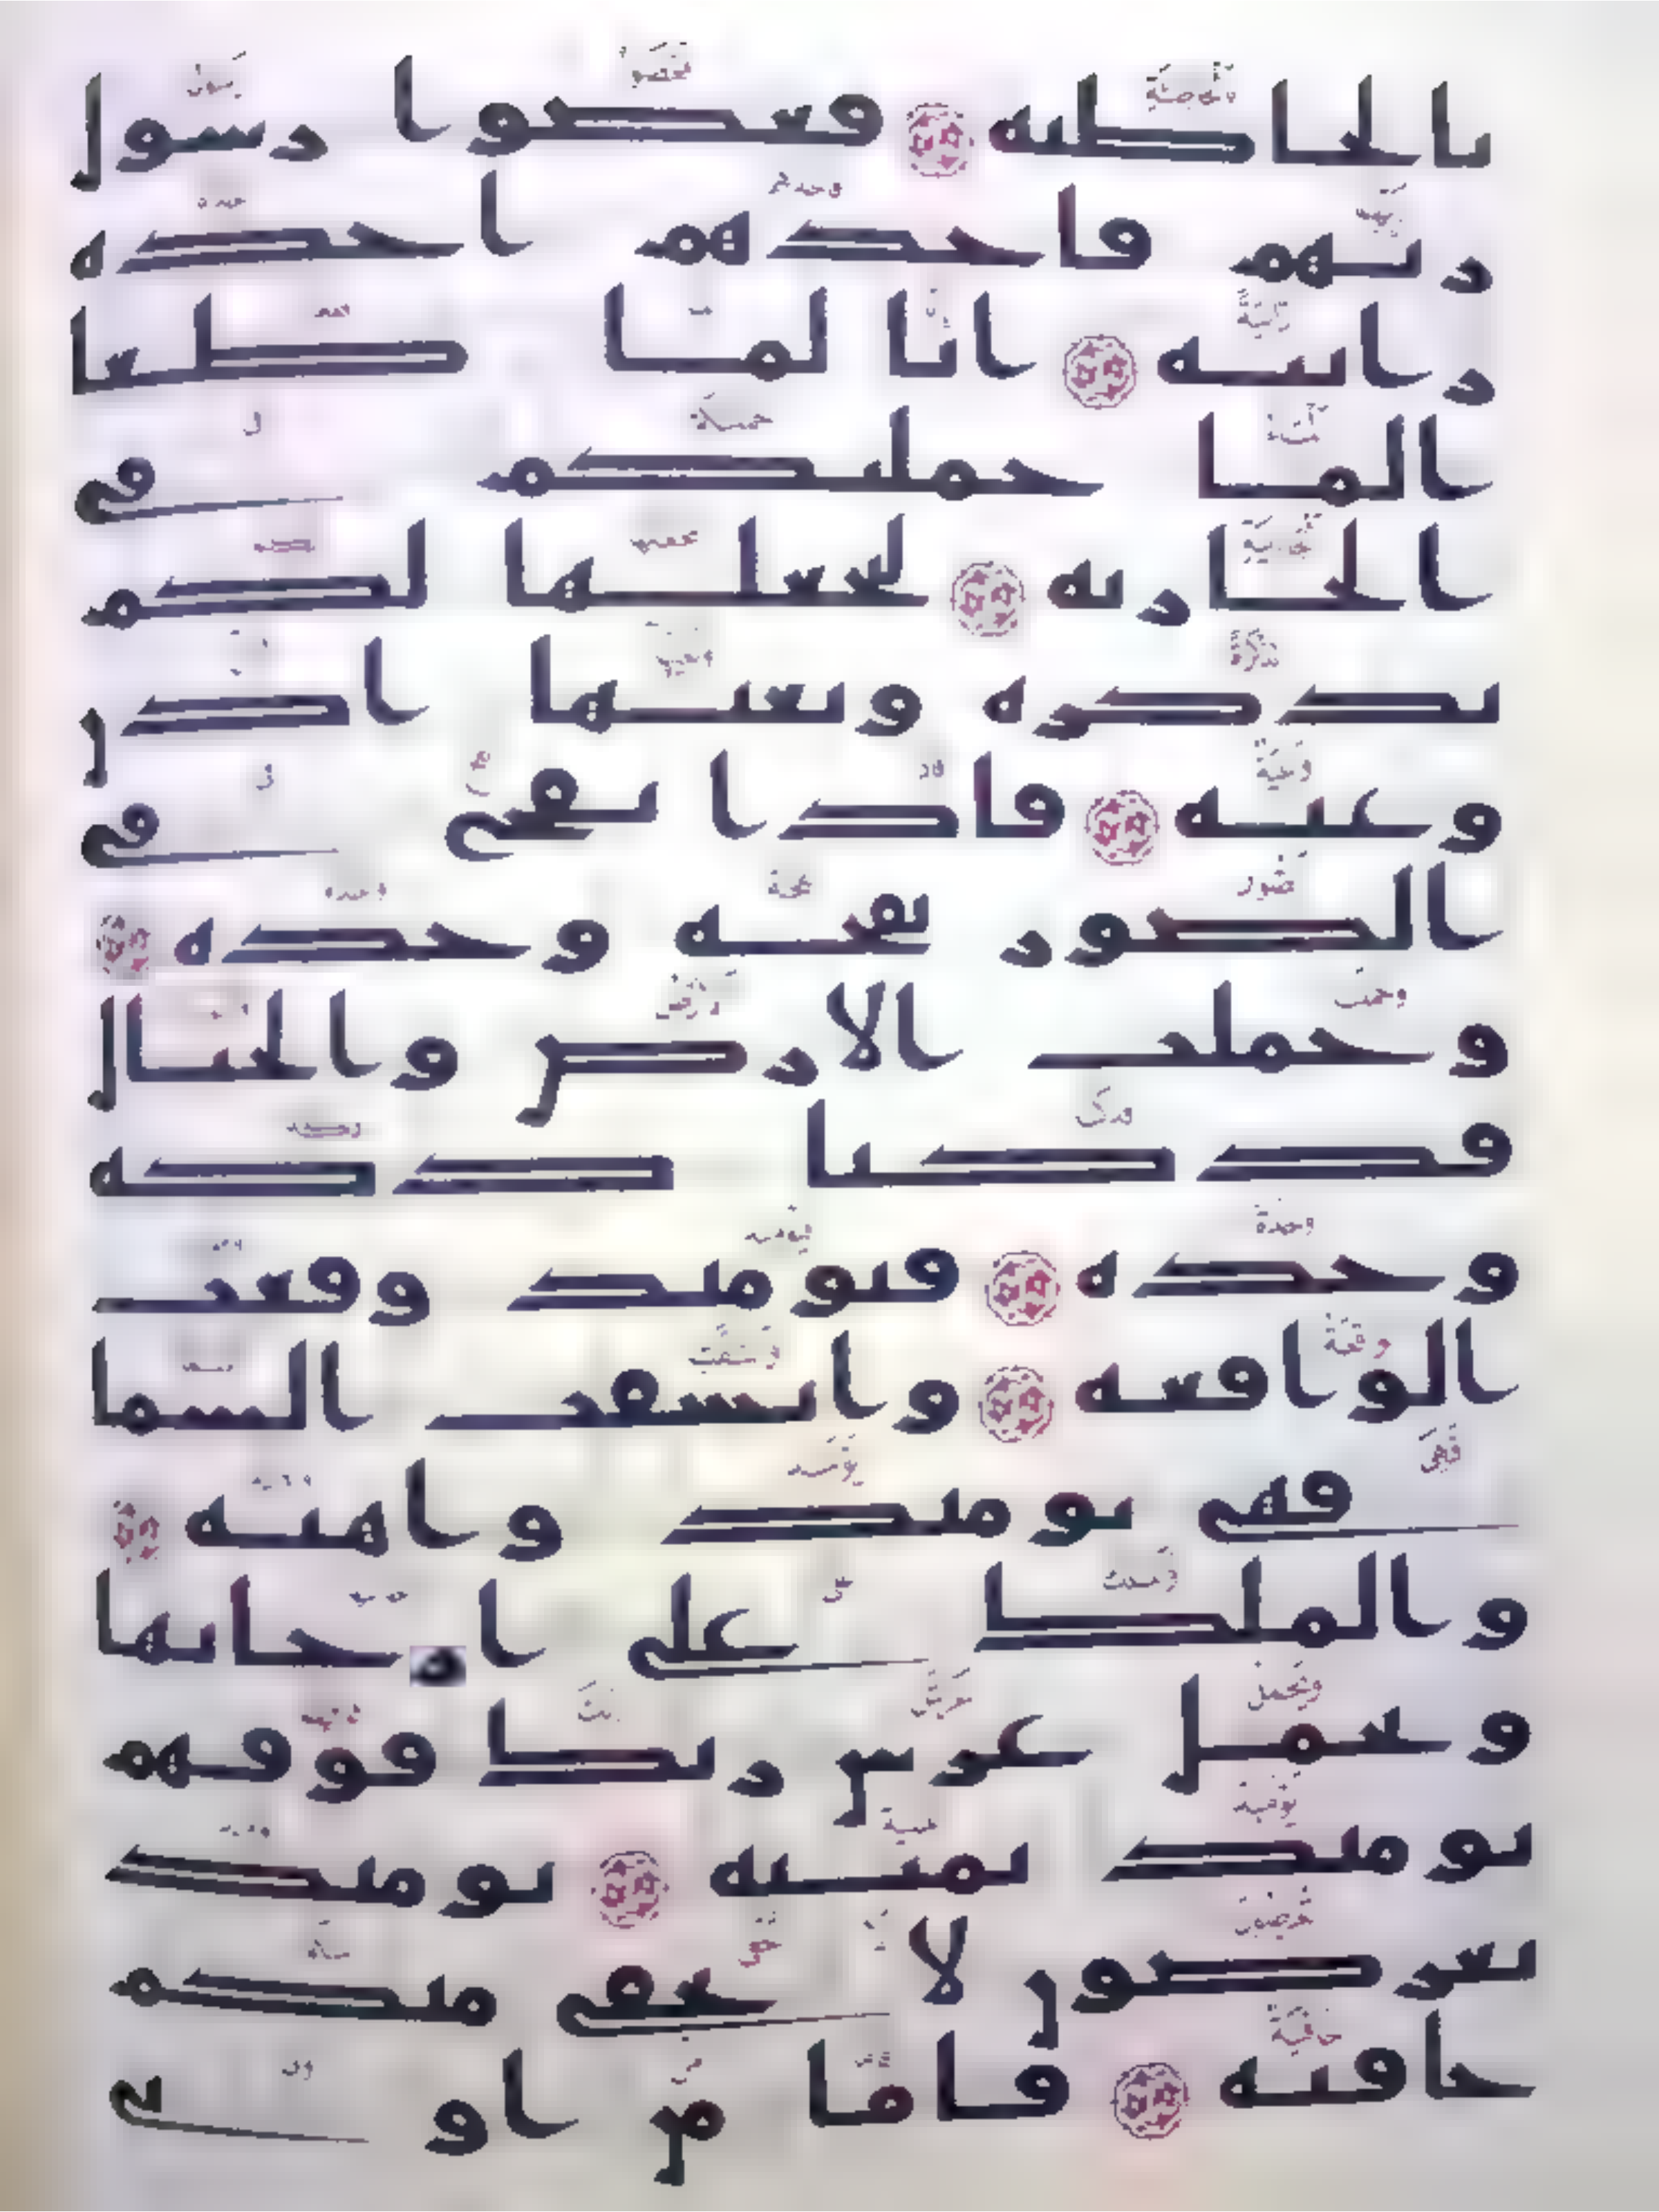 بالخاطيه فعصوا رسول
ربهم فاخذهم اخذه
رابيه انا لما طغا
الما حملنكم في
الجاريه لنجعلها لكم
تذكره وتعيها اذن
وعيه فاذا نفخ في
الصور نفخه وحده
وحملت الارض والجبال
فدكتا دكه
وحده فيومئذ وقعت
الواقعه وانشقت السما
فهي يومئذ واهيه
والملك على ارجائها
ويحمل عرش ربك فوقهم
يومئذ ثمنيه يومئذ
تعرضون لا تخفى منكم
خافيه فاما من اوتي